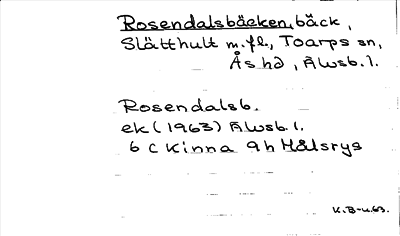 Rosendalsbäcken, bäck,
Slätthult m.fl., Toarps sn,
Ås hd, Älvsb. l.
Rosendalsb.
ek (1963) Älvsb. l.
6 C Kinna 9 h Målsryd
K.B-u.63.